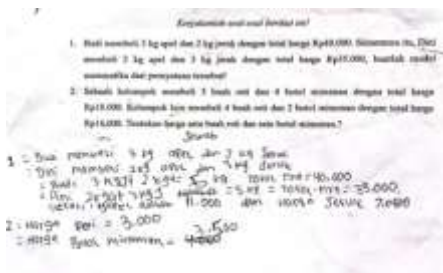 Kerjakanlah soal-soal berikut ini!
1. Budi membeli 3 kg apel dan 2 kg jeruk dengan total harga Rp40.000. Sementara itu, Dini
membeli 2 kg apel dan 3 kg jeruk dengan total harga Rp35.000, buatlah model
matematika dari pernyataan tersebut!
2. Sebuah kelompok membeli 3 buah roti dan 4 botol minuman dengan total harga
Rp18.000. Kelompok lain membeli 4 buah roti dan 2 botol minuman dengan harga
Rp16.000. Tentukan harga satu buah roti dan satu botol minuman?
Jawab
1 = membeli 3 kg apel dan 2 kg Jeruk
= Dini membeli 2 kg apel dan 3 kg Jeruk
= Budi 3 kg + 2 kg = 5 kg = 40.000
= Dini 2 kg + 3 kg = 5 kg = 35.000
11.000 dan harga Jeruk 7.000
2 = Harga = 3.000
= Harga Botol minuman = 3.500